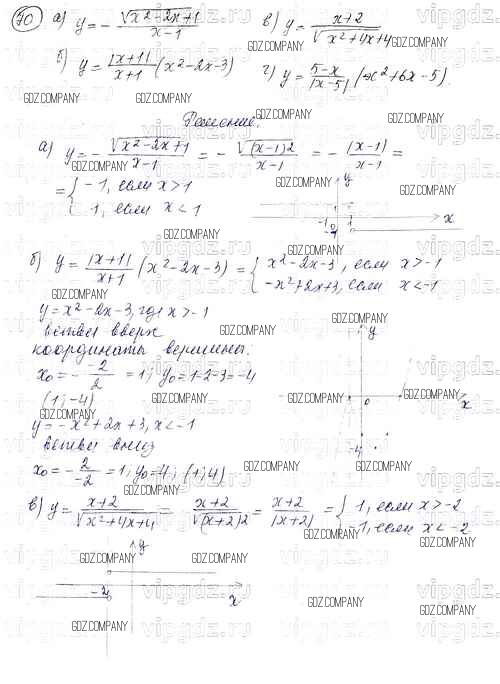 70 а) y = - √(x²-2x+1) / (x-1) в) y = (x+2) / √(x²+4x+4)
б) y = |x+1| / (x+1) (x²-2x-3) г) y = (5-x) / |x-5| (x²+6x-5).
Решение.
а) y = - √(x²-2x+1) / (x-1) = - √(x-1)² / (x-1) = - |x-1| / (x-1) =
= { -1, если x>1
1, если x<1
y
1
-1 1 x
б) y = |x+1| / (x+1) (x²-2x-3) = { x²-2x-3, если x>-1
-x²+2x+3, если x<-1
y = x²-2x-3, где x>-1
ветви вверх
координаты вершины.
x₀ = - -2/2 = 1; y₀ = 1-2-3 = -4
(1; -4)
y = -x²+2x+3, x<-1
ветви вниз
x₀ = - 2/-2 = 1; y₀ = 4; (1; 4)
y
0 x
-4
в) y = (x+2) / √(x²+4x+4) = (x+2) / √(x+2)² = (x+2) / |x+2| = { 1, если x>-2
-1, если x<-2
y
-2 x
GDZ.COMPANY
vipgdz.ru